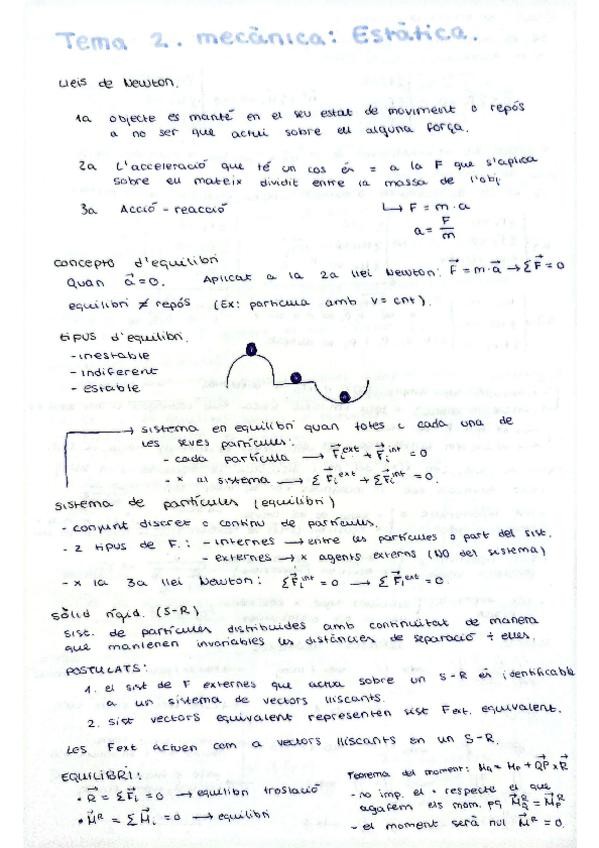 Tema 2. mecànica: Estàtica.
Lleis de Newton.
1a objecte es manté en el seu estat de moviment o repòs
a no ser que actuï sobre ell alguna força.
2a L'acceleració que té un cos és = a la F que s'aplica
sobre ell mateix dividit entre la massa de l'obj.
3a Acció - reacció ↳ F = m·a
a = F/m
concepto d'equilibri
Quan a⃗ = 0. Aplicat a la 2a llei Newton: F⃗ = m·a⃗ → ΣF⃗ = 0
equilibri ≠ repòs (Ex: partícula amb v = cnt).
tipus d'equilibri.
- inestable
- indiferent
- estable
→ sistema en equilibri quan totes i cada una de
les seves partícules:
- cada partícula → F⃗ᵢᵉˣᵗ + F⃗ᵢⁱⁿᵗ = 0
- x al sistema → Σ F⃗ᵢᵉˣᵗ + Σ F⃗ᵢⁱⁿᵗ = 0.
sistema de partícules (equilibri)
- conjunt discret o continu de partícules.
- 2 tipus de F.: - internes → entre les partícules o part del sist.
- externes → x agents externs (NO del sistema)
- x la 3a llei Newton: ΣF⃗ᵢⁱⁿᵗ = 0 → ΣF⃗ᵢᵉˣᵗ = 0.
sòlid rígid. (S-R)
sist. de partícules distribuides amb continuïtat de manera
que mantenen invariables les distàncies de separació + elles.
POSTULATS:
1. el sist de F externes que actua sobre un S-R és identificable
a un sistema de vectors lliscants.
2. sist vectors equivalent representen sist Fext. equivalent.
Les Fext actuen com a vectors lliscants en un S-R.
EQUILIBRI:
• R⃗ = ΣF⃗ᵢ = 0 → equilibri traslació
• M⃗ᴿ = ΣM⃗ᵢ = 0 → equilibri
Teorema del moment: M_Q = M_P + QP⃗ x R⃗
- no imp. el • respecte el que
agafem els mom. pq M⃗_Qᴿ = M⃗_Pᴿ
- el moment serà nul M⃗ᴿ = 0.